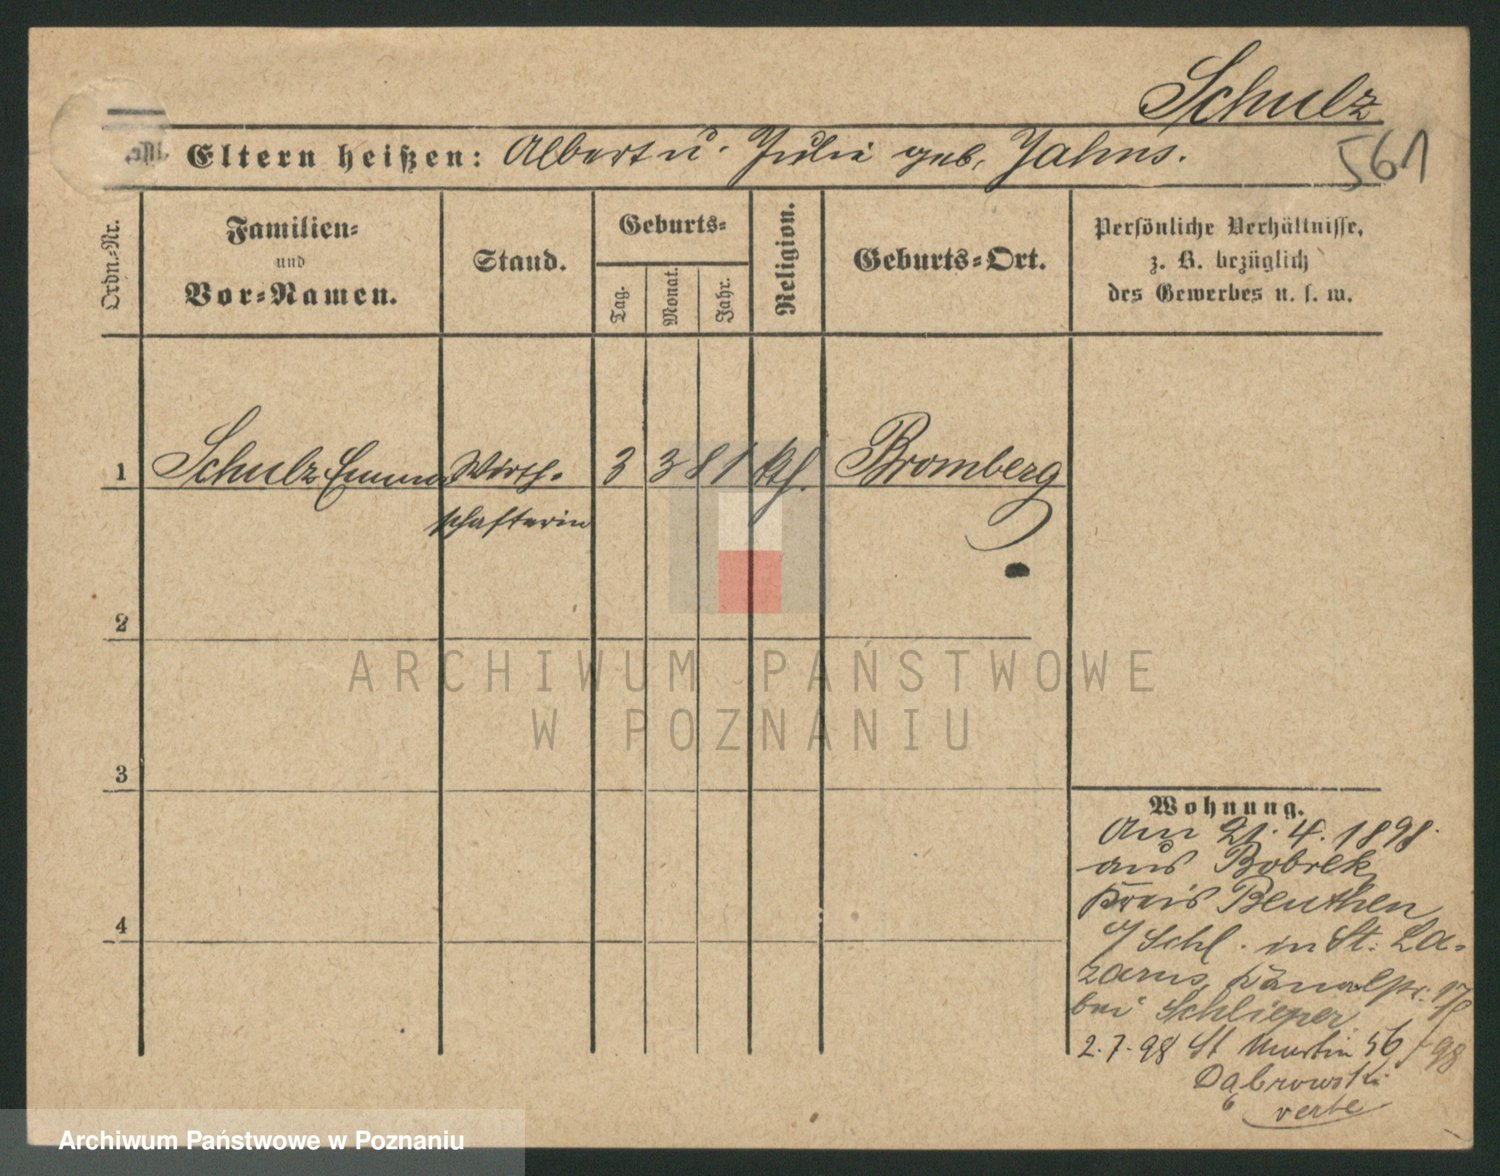 Schulz
561
Eltern heißen: Albert u. Julie geb. Jahns.
Ordn.-Nr.
Familien-
und
Vor-Namen.
Stand.
Geburts-
Tag.
Monat.
Jahr.
Religion.
Geburts-Ort.
Persönliche Verhältnisse,
z. B. bezüglich
des Gewerbes u. s. w.
1 Schulz Emma Wirth- 3 3 81 kth. Bromberg
schafterin
2
3
4
Wohnung.
Am 21.4.1898
aus Bobrek
Kreis Beuthen
o/Schl. in St. La-
zarus, Kanalstr.
bei Schlieper
2.7.98 St Martin 56
98
Dąbrowski
ARCHIWUM PAŃSTWOWE
W POZNANIU
Archiwum Państwowe w Poznaniu